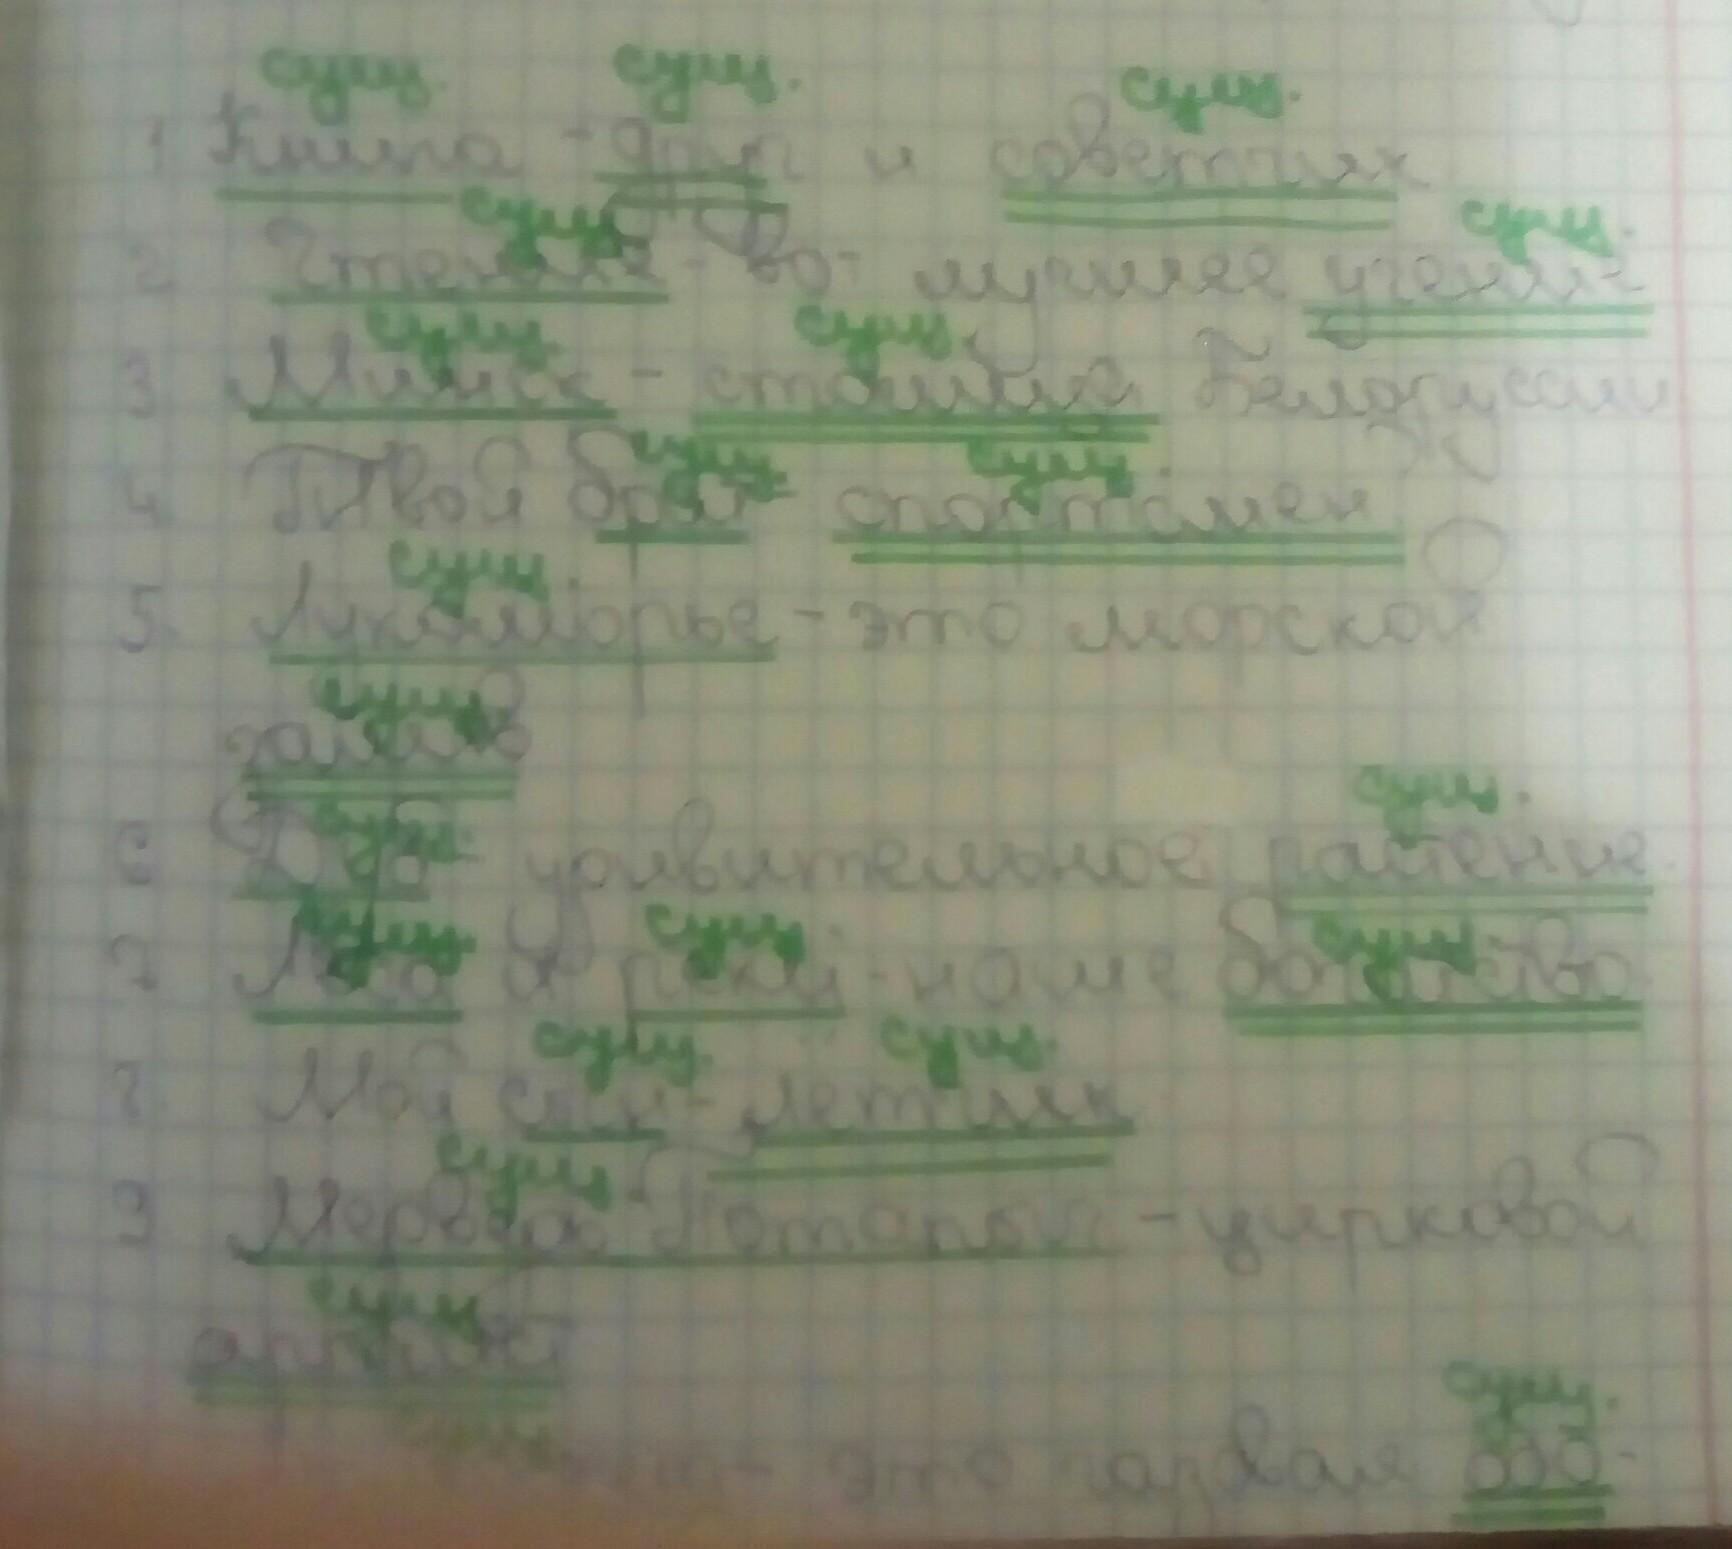 сущ. сущ. сущ.
1 Книга - друг и советчик
сущ. сущ.
2 Чтение - лучшее учение
сущ. сущ.
3 Минск - столица Белоруссии
сущ. сущ.
4 Твой брат спортсмен
сущ.
5. Лукоморье - это морской
сущ.
залив
сущ. сущ.
6 Дуб - удивительное растение.
сущ. сущ. сущ.
7 Леса и реки - наше богатство.
сущ. сущ.
8. Мой сын - летчик
сущ
9 Медведь Потапыч - цирковой
сущ
артист
сущ.
- это газовая обо-